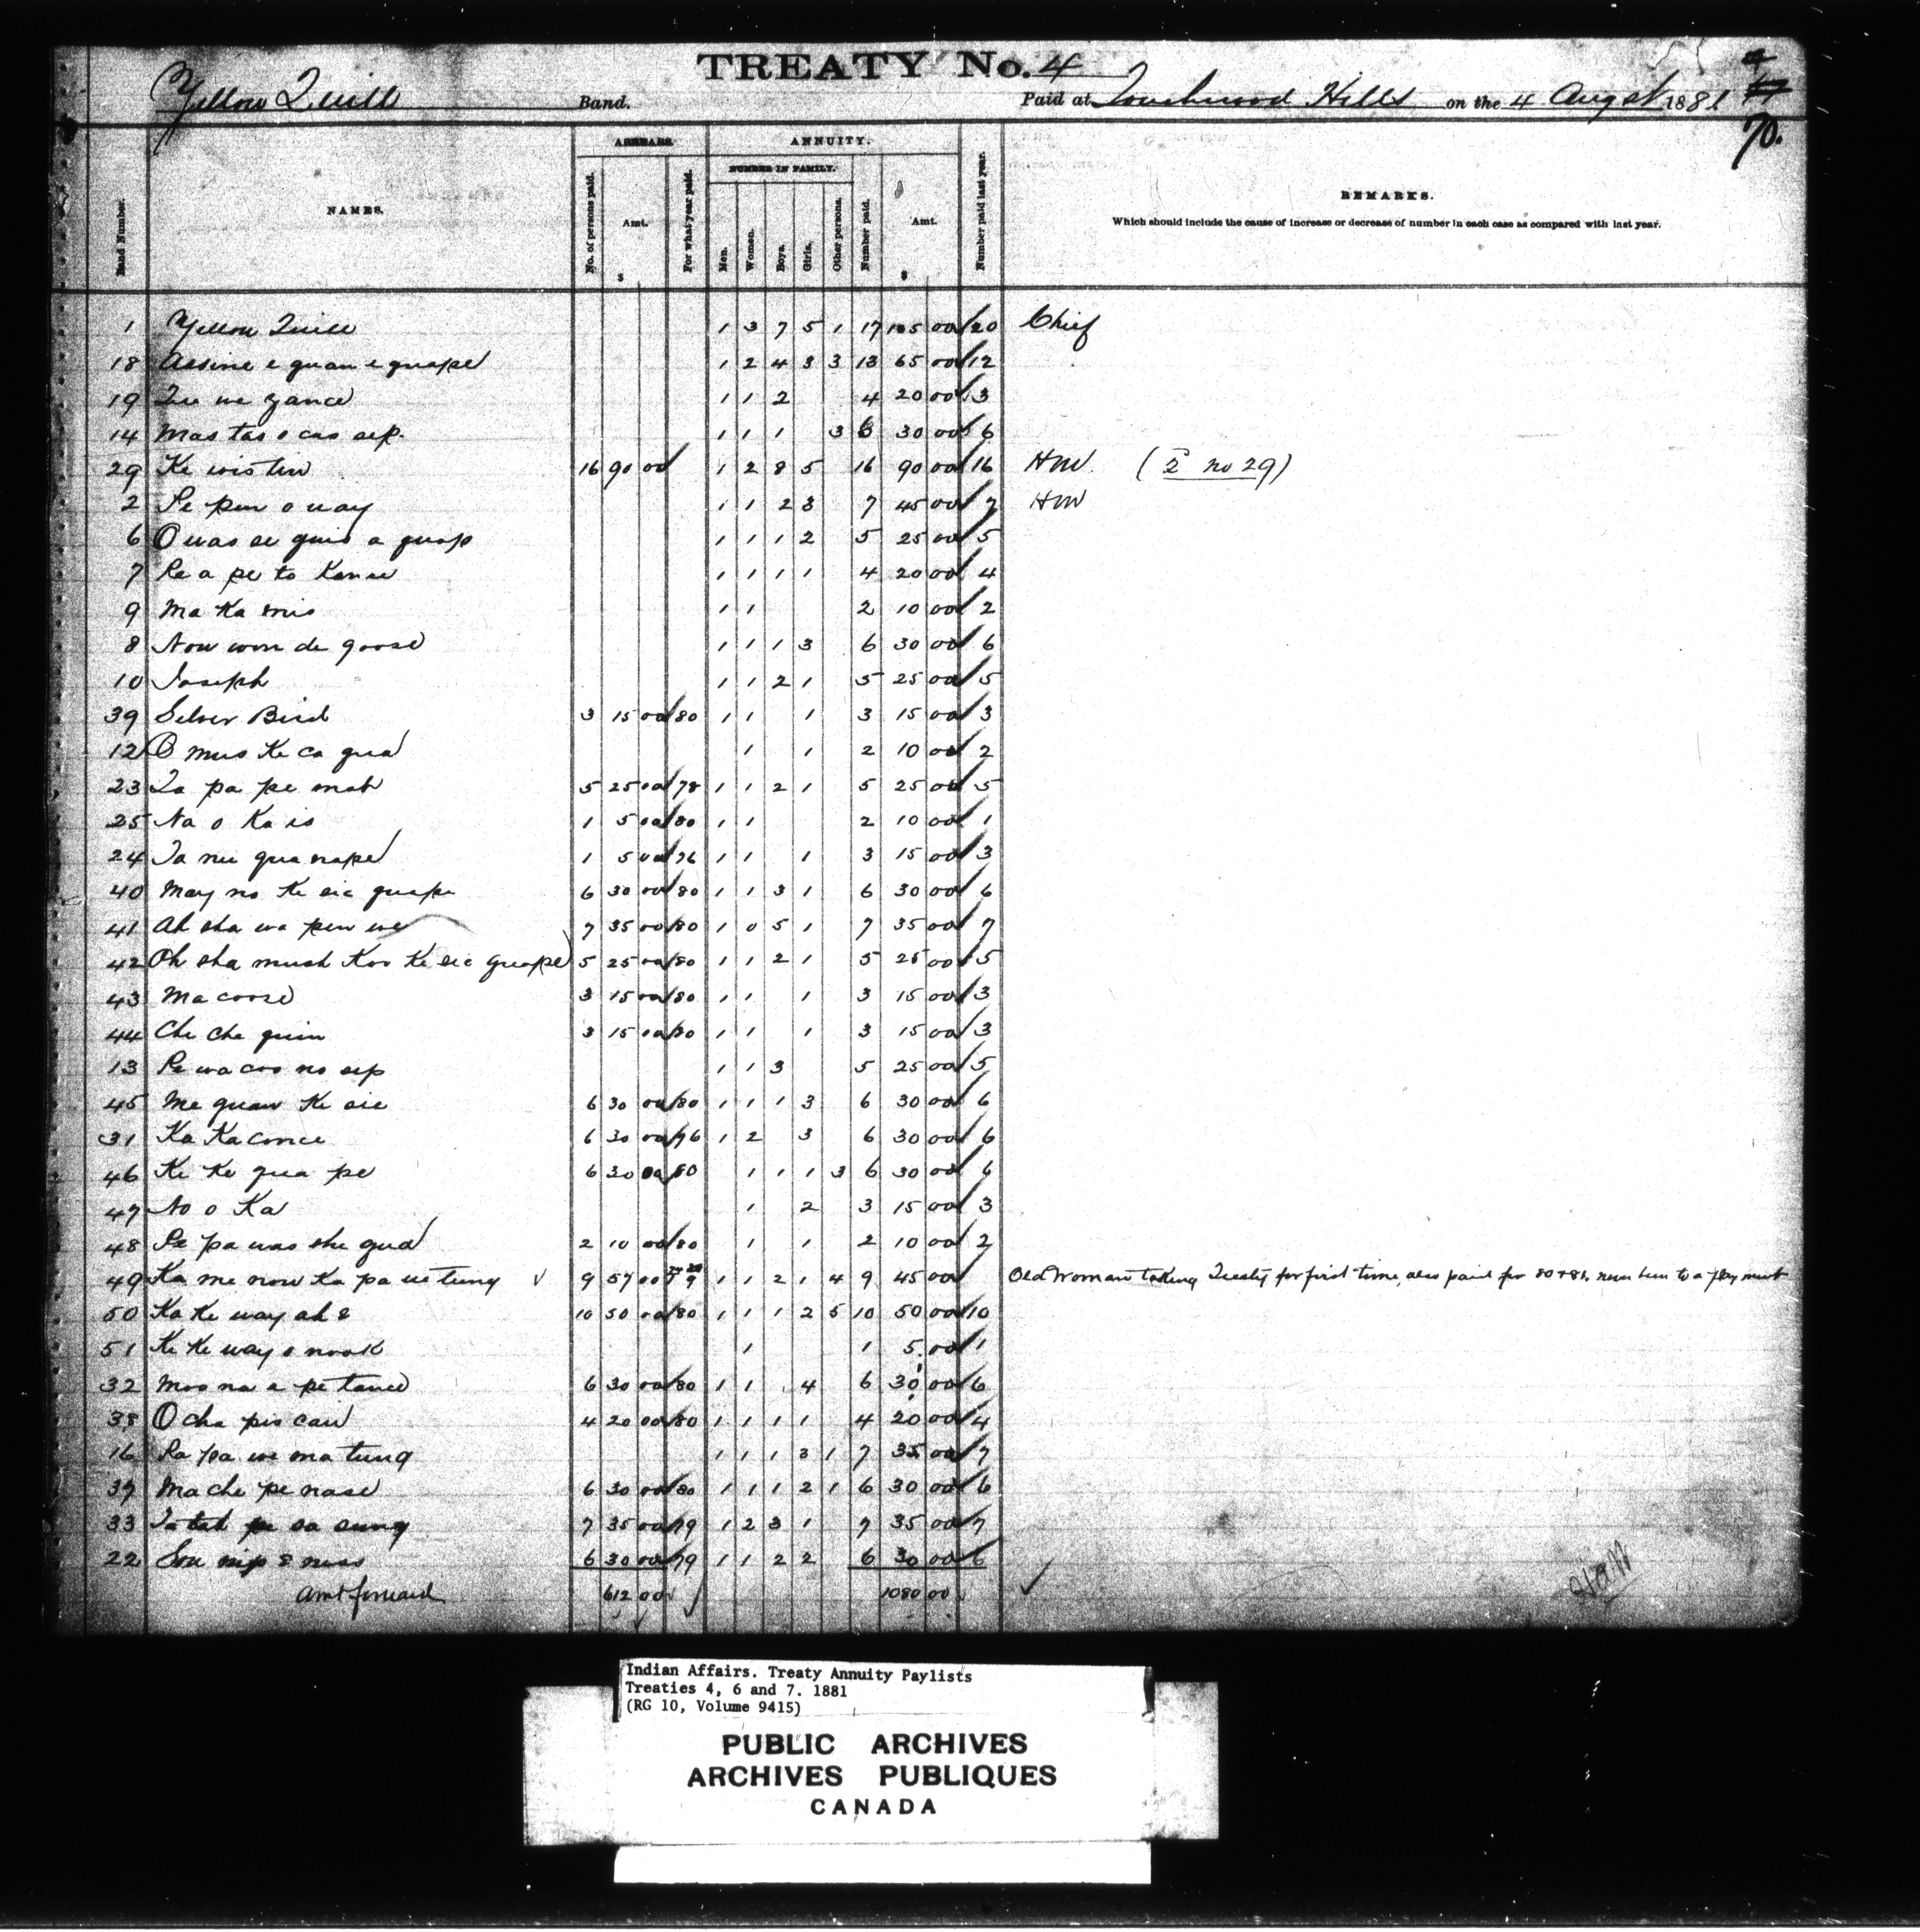 TREATY No. 4
Yellow Quill Band. Paid at Touchwood Hills on the 4 August 1881
70.
ARREARS. ANNUITY.
NUMBER IN FAMILY.
Band Number. NAMES. No. of persons paid. Amt. $ For what year paid. Men. Women. Boys. Girls. Other persons. Number paid. Amt. $ Number paid last year. REMARKS.
Which should include the cause of increase or decrease of number in each case as compared with last year.
1 Yellow Quill 1 3 7 5 1 17 105 00 20 Chief
18 Assine e quan e quape 1 2 4 3 3 13 65 00 12
19 we zance 1 1 2 4 20 00 3
14 Mas tas o cas sip. 1 1 1 3 6 30 00 6
29 Ke wis tin 16 90 00 1 2 8 5 16 90 00 16 HM. (2 no 29)
2 Pe pin o way 1 1 2 3 7 45 00 7 HM
6 O was se quis a quap 1 1 1 2 5 25 00 5
7 Pe a pe to 1 1 1 1 4 20 00 4
9 Ma Ka mis 1 1 2 10 00 2
8 Now won de goose 1 1 1 3 6 30 00 6
10 Joseph 1 1 2 1 5 25 00 5
39 Silver Bird 3 15 00 80 1 1 1 3 15 00 3
12 O mus Ke ca qua 1 1 2 10 00 2
23 Ta pa pe mat 5 25 00 78 1 1 2 1 5 25 00 5
25 Na o Ka is 1 5 00 80 1 1 2 10 00 1
24 Ta nu qua nape 1 5 00 76 1 1 1 3 15 00 3
40 May no Ke sic quape 6 30 00 80 1 1 3 1 6 30 00 6
41 Ah sha wa pen we 7 35 00 80 1 0 5 1 7 35 00 7
42 Oh sha mush Koo Ke sic quape 5 25 00 80 1 1 2 1 5 25 00 5
43 Ma coose 3 15 00 80 1 1 1 3 15 00 3
44 Che Che quin 3 15 00 80 1 1 1 3 15 00 3
13 Pe wa coo no sip 1 1 3 5 25 00 5
45 Me quaw Ke sic 6 30 00 80 1 1 1 3 6 30 00 6
31 Ka Ka conce 6 30 00 76 1 2 3 6 30 00 6
46 Ke Ke qua pe 6 30 00 80 1 1 1 3 6 30 00 6
47 No o Ka 1 2 3 15 00 3
48 Pe pa was she qua 2 10 00 80 1 1 2 10 00 2
49 Ka me now Ka pa we tung 9 57 00 79 1 1 2 1 4 9 45 00 Old Woman taking Treaty for first time, also paid for 80 + 81. never been to a payment
50 Ka Ke way ah 10 50 00 80 1 1 1 2 5 10 50 00 10
51 Ke Ke way o nook 1 1 5.00 1
32 Moo na a pe tance 6 30 00 80 1 1 4 6 30 00 6
38 O cha pis cau 4 20 00 80 1 1 1 1 4 20 00 4
16 Pa pa we ma tung 1 1 1 3 1 7 35 00 7
37 Ma che pe nase 6 30 00 80 1 1 1 2 1 6 30 00 6
33 Ta tah pe sa sung 7 35 00 79 1 2 3 1 7 35 00 7
22 6 30 00 79 1 1 2 2 6 30 00 6
Amt forward 612 00 1080 00
Indian Affairs. Treaty Annuity Paylists
Treaties 4, 6 and 7. 1881
(RG 10, Volume 9415)
PUBLIC ARCHIVES
ARCHIVES PUBLIQUES
CANADA